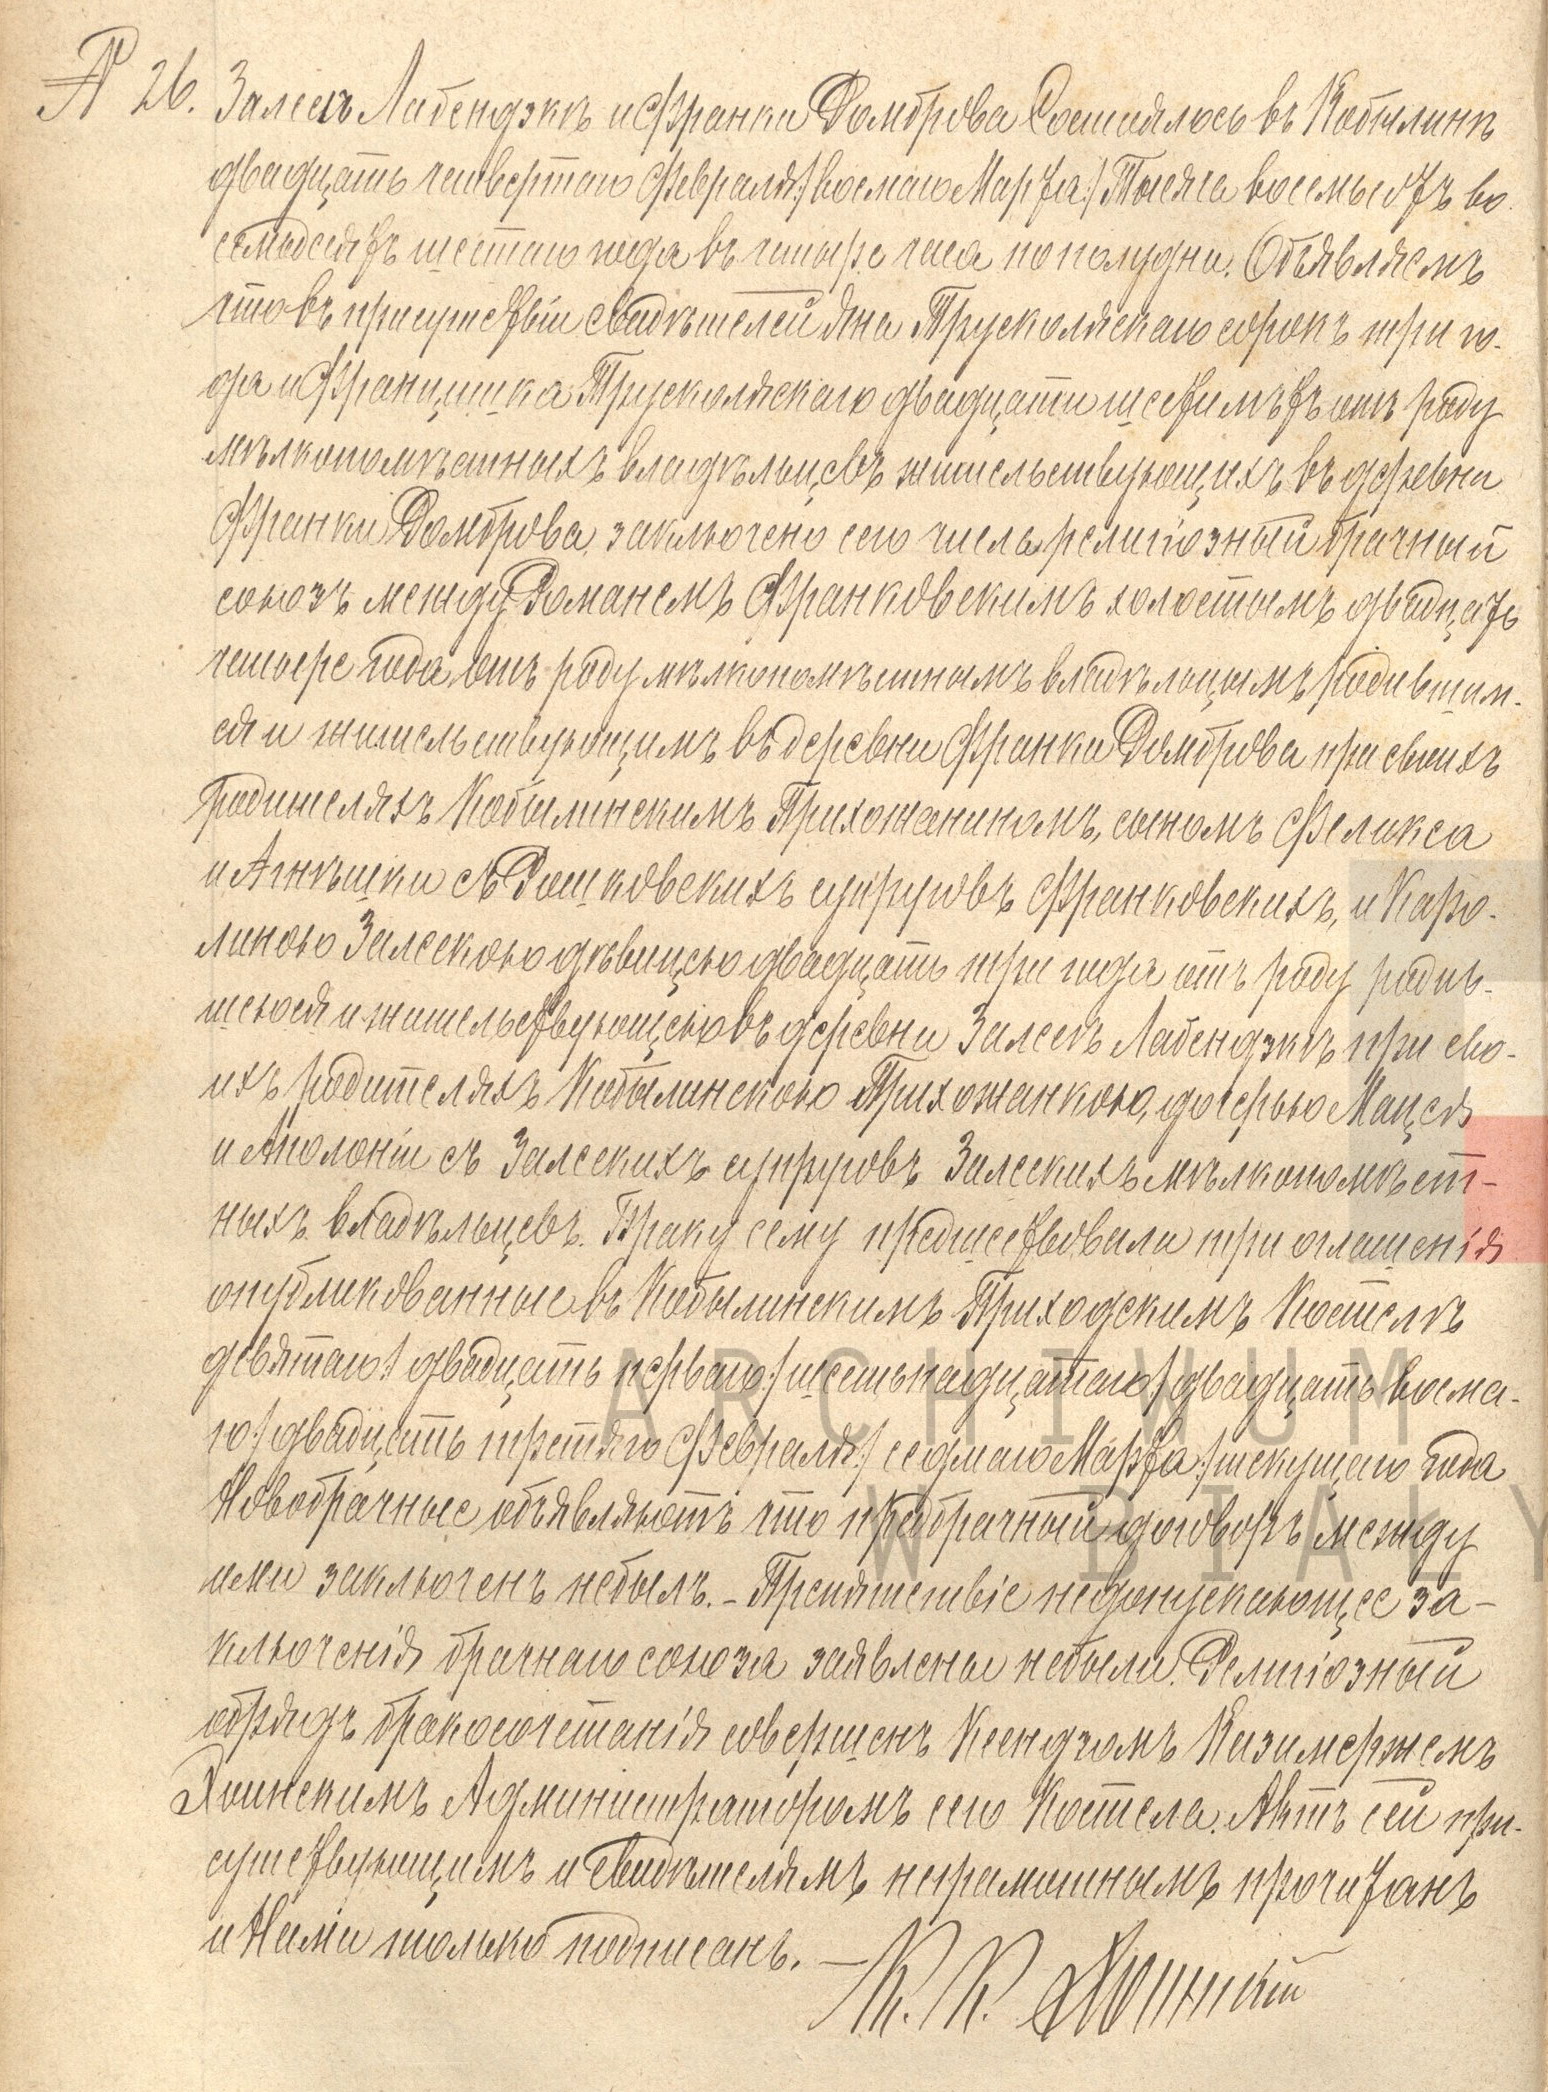 № 26. Залесъ Лабендзкъ и Франки Домброва Состоялось въ Кобылинѣ
двадцать четвертаго Февраля /: восмаго Марта :/ Тысяча восемьсотъ во-
семдесятъ шестаго года въ четыре часа по полудни. Объявляемъ
что въ присутствіи свидѣтелей Яна Трусколяскаго сорокъ три го-
да и Францишка Трусколяскаго двадцати шести лѣтъ отъ роду
мѣлкопомѣстныхъ владѣльцевъ жительствующихъ въ деревни
Франки Домброва, заключено сего числа религіозный брачный
союзъ между Романемъ Франковскимъ холостымъ двадцать
четыре года отъ роду мѣлкопомѣстнымъ владѣльцымъ родившим-
ся и жительствующимъ въ деревни Франки Домброва при своихъ
родителяхъ Кобылинскимъ Прихожаниномъ, сыномъ Феликса
и Агнѣшки съ Рошковскихъ супруговъ Франковскихъ, и Каро-
линою Залескою дѣвицею двадцать три года отъ роду родив-
шеюся и жительствующею въ деревни Залесъ Лабендзкъ при сво-
ихъ родителяхъ Кобылинскою Прихожанкою, дочерью Мацея
и Аполоніи съ Залескихъ супруговъ Залескихъ мѣлкопомѣст-
ныхъ владѣльцевъ. Браку сему предшествовали три оглашенія
опубликованные въ Кобылинскимъ Приходскимъ Костелѣ
девятаго / двадцать перваго :/ шестьнадцатаго / двадцать восма-
го / двадцать третяго Февраля :/ седмаго Марта :/ текущаго года
Новобрачные объявляютъ что предбрачный договоръ между
ими заключенъ небылъ. – Препятствіе недопускающее за-
ключенія брачнаго союза заявлены небыли. Религіозный
обрядъ бракосочетанія совершенъ Ксендзомъ Казимержемъ
Хоинскимъ Администраторомъ сего Костела. Актъ сей при-
сутствующимъ и свидѣтелямъ неграмотнымъ прочитанъ
и Нами только подписанъ. –
К. К. Хоинскій
ARCHIWUM
W BIAŁY